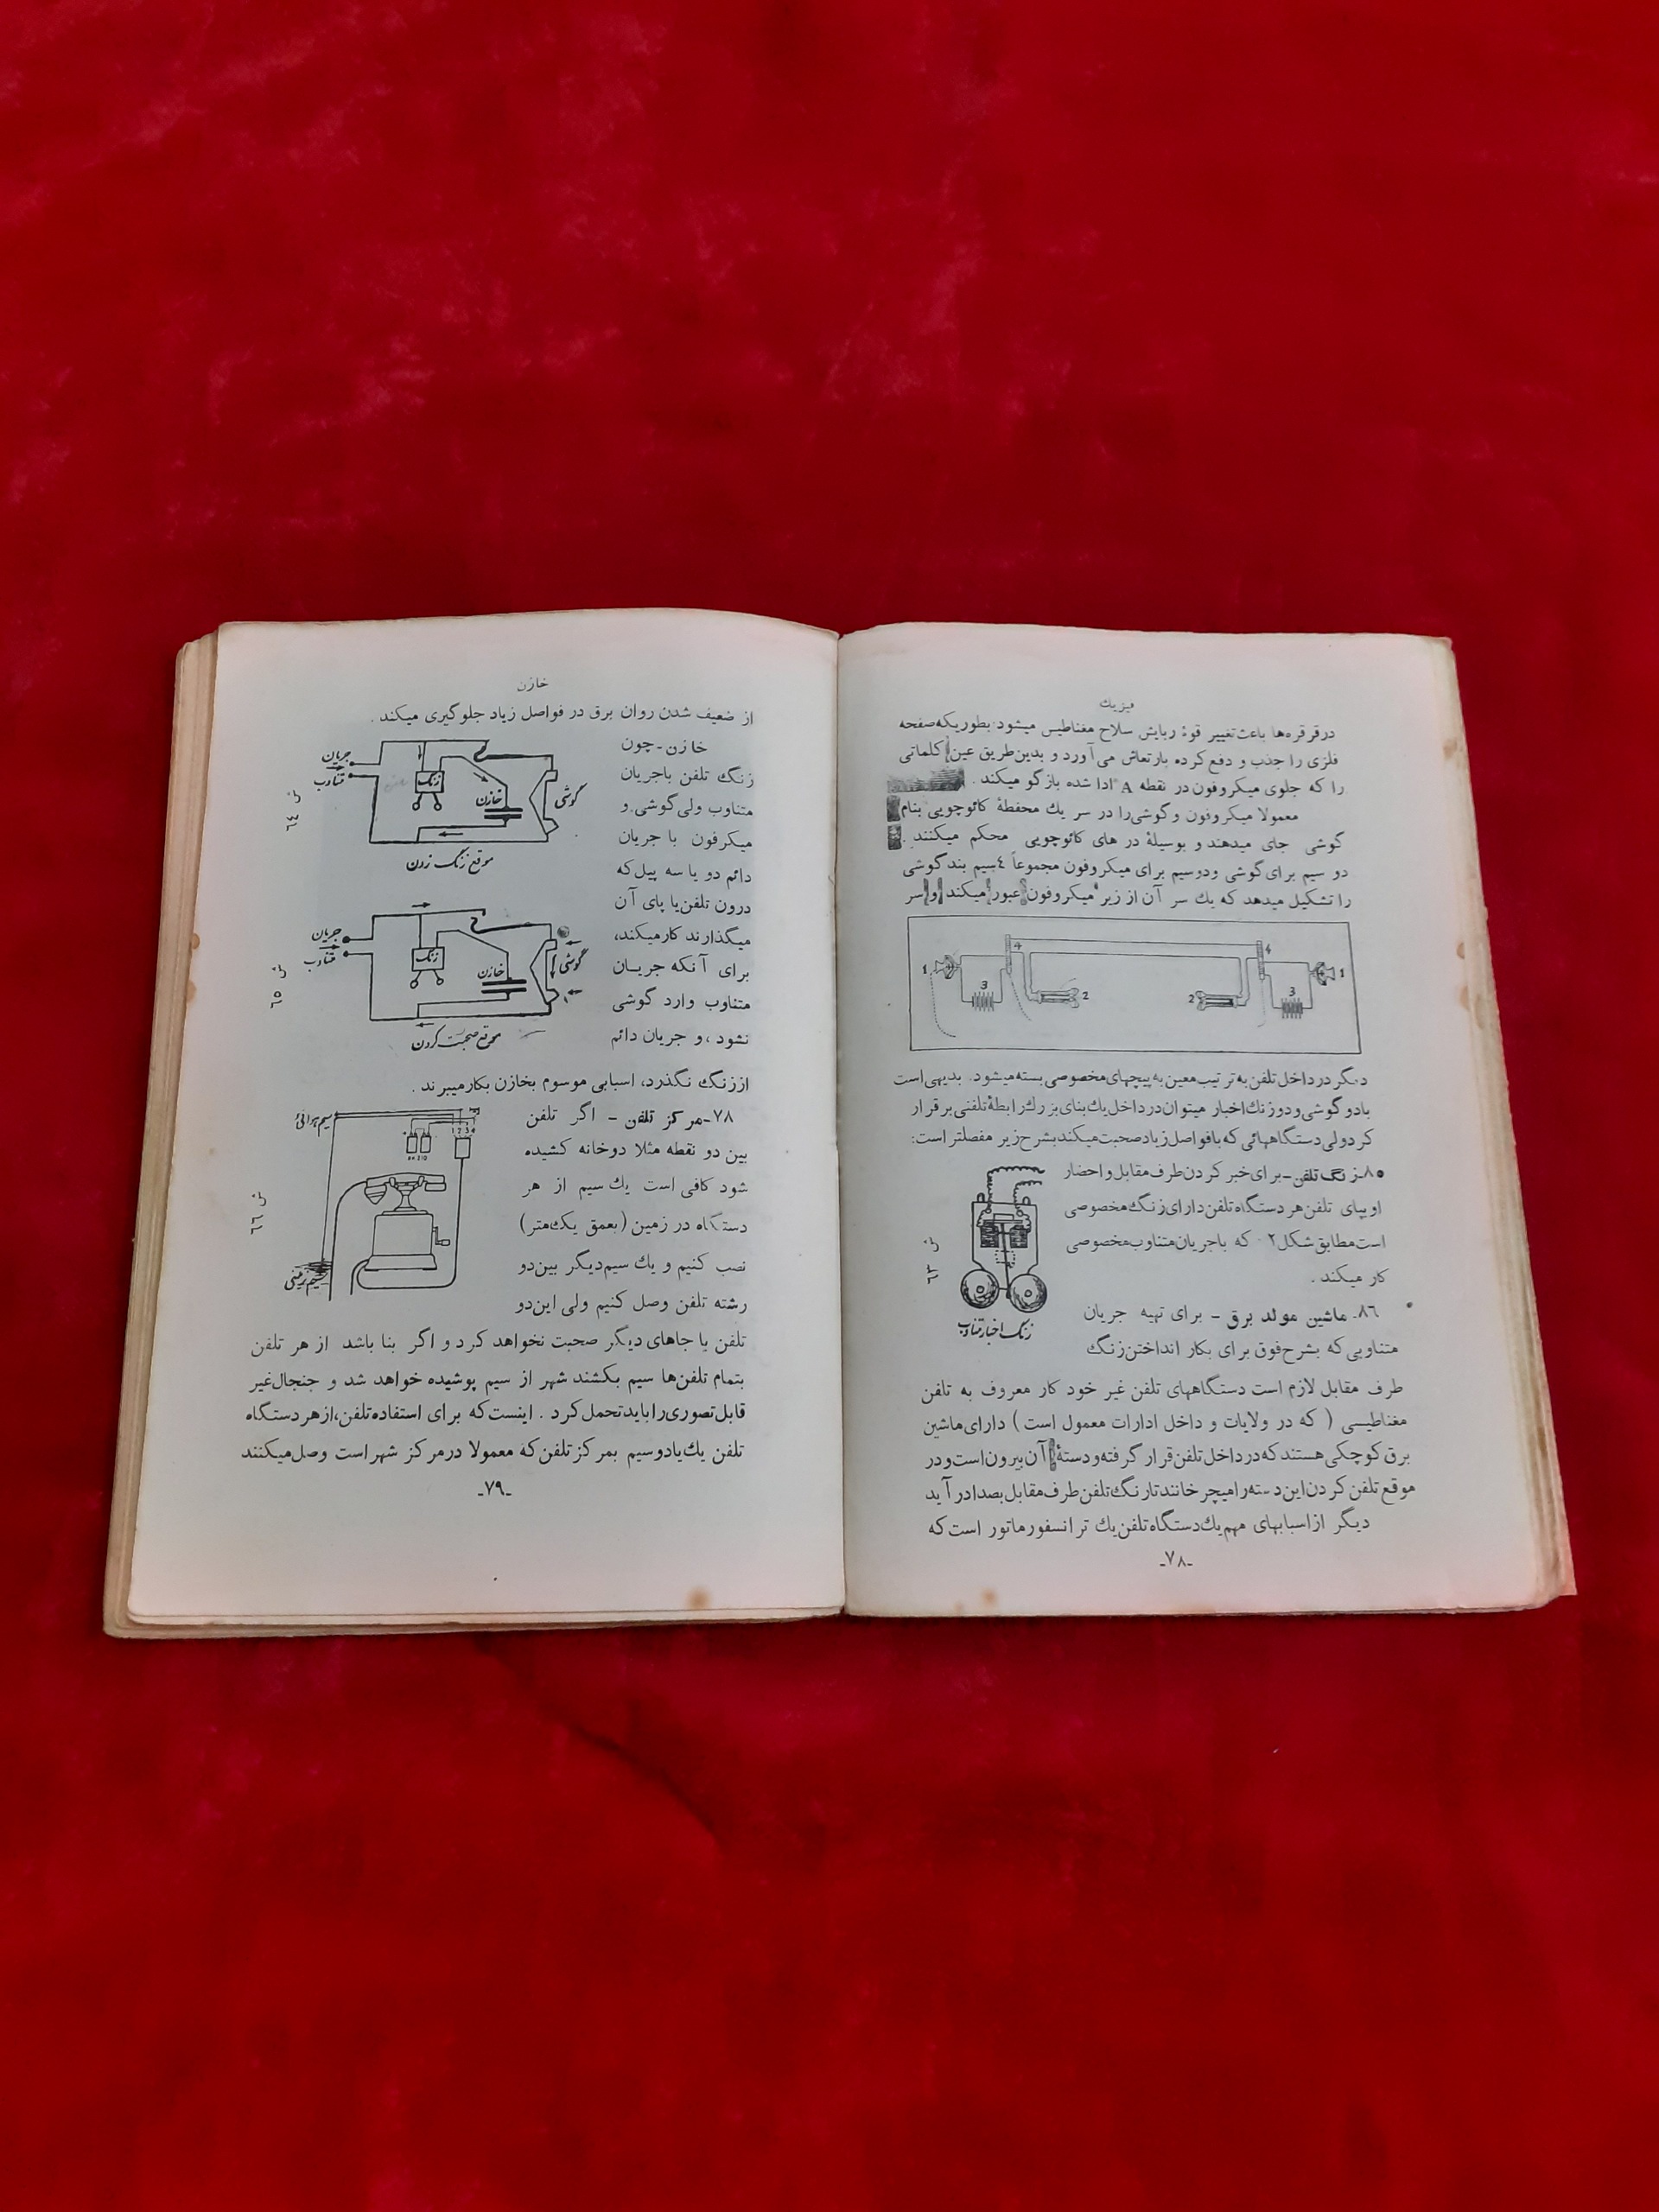 فیزیك
درقرقره‌ها باعث تغییر قوۀ ربایش سلاح مغناطیس میشود بطوریکه صفحه
فلزی را جذب و دفع کرده بارتعاش می‌آورد و بدین‌طریق عین کلماتی
را که جلوی میکروفون در نقطه A ادا شده بازگو میکند .
معمولا میکروفون وگوشی‌را در سر یك محفظۀ کائوچویی بنام
گوشی جای میدهند و بوسیلۀ در های کائوچویی محکم میکنند .
دو سیم برای گوشی ودوسیم برای میکروفون مجموعاً ٤سیم بند گوشی
را تشکیل میدهد که یك سر آن از زیر میکروفون عبور میکند و سر
1 3 4 2 2 4 3 1
دیگر در داخل تلفن به ترتیب معین به پیچهای مخصوصی بسته میشود. بدیهی است
بادو گوشی و دو زنك اخبار میتوان در داخل یك بنای بزرك رابطۀ تلفنی برقرار
کرد ولی دستگاههائی که بافواصل زیاد صحبت میکند بشرح زیر مفصلتر است:
۸۰ـ زنگ تلفن ـ برای خبر کردن طرف مقابل و احضار
او بپای تلفن هر دستگاه تلفن دارای زنگ مخصوصی
است مطابق شکل ۲ که باجریان متناوب مخصوصی
کار میکند .
ش ٦٣
زنگ اخبار متناوب
۸٦ـ ماشین مولد برق ـ برای تهیه جریان
متناوبی که بشرح فوق برای بکار انداختن زنگ
طرف مقابل لازم است دستگاههای تلفن غیر خود کار معروف به تلفن
مغناطیسی ( که در ولایات و داخل ادارات معمول است ) دارای ماشین
برق کوچکی هستند که در داخل تلفن قرار گرفته و دستۀ آن بیرون است و در
موقع تلفن کردن این دسته را میچرخانند تا زنگ تلفن طرف مقابل بصدا در آید
دیگر از اسبابهای مهم یك دستگاه تلفن یك ترانسفورماتور است که
ـ۷۸ـ
خازن
از ضعیف شدن روان برق در فواصل زیاد جلوگیری میکند .
خازن ـ چون
زنگ تلفن باجریان
متناوب ولی گوشی و
میکرفون با جریان
دائم دو یا سه پیل که
درون تلفن یا پای آن
میگذارند کار میکند،
برای آنکه جریان
متناوب وارد گوشی
نشود ، و جریان دائم
جریان
متناوب
زنگ
خازن
گوشی
ش ٦٤
موقع زنگ زدن
جریان
متناوب
زنگ
خازن
گوشی
ش ٦٥
موقع صحبت کردن
از زنگ نگذرد، اسبابی موسوم بخازن بکار میبرند .
۷۸ـ مرکز تلفن ـ اگر تلفن
بین دو نقطه مثلا دوخانه کشیده
شود کافی است یك سیم از هر
دستگاه در زمین (بعمق یك متر)
نصب کنیم و یك سیم دیگر بین دو
رشته تلفن وصل کنیم ولی این دو
سیم هوائی
1 2 3 4
سیم زمینی
ش ٦٦
تلفن یا جاهای دیگر صحبت نخواهد کرد و اگر بنا باشد از هر تلفن
بتمام تلفن‌ها سیم بکشند شهر از سیم پوشیده خواهد شد و جنجال غیر
قابل تصوری را باید تحمل کرد . اینست که برای استفاده تلفن، از هر دستگاه
تلفن یك یا دو سیم بمرکز تلفن که معمولا در مرکز شهر است وصل میکنند
ـ۷۹ـ